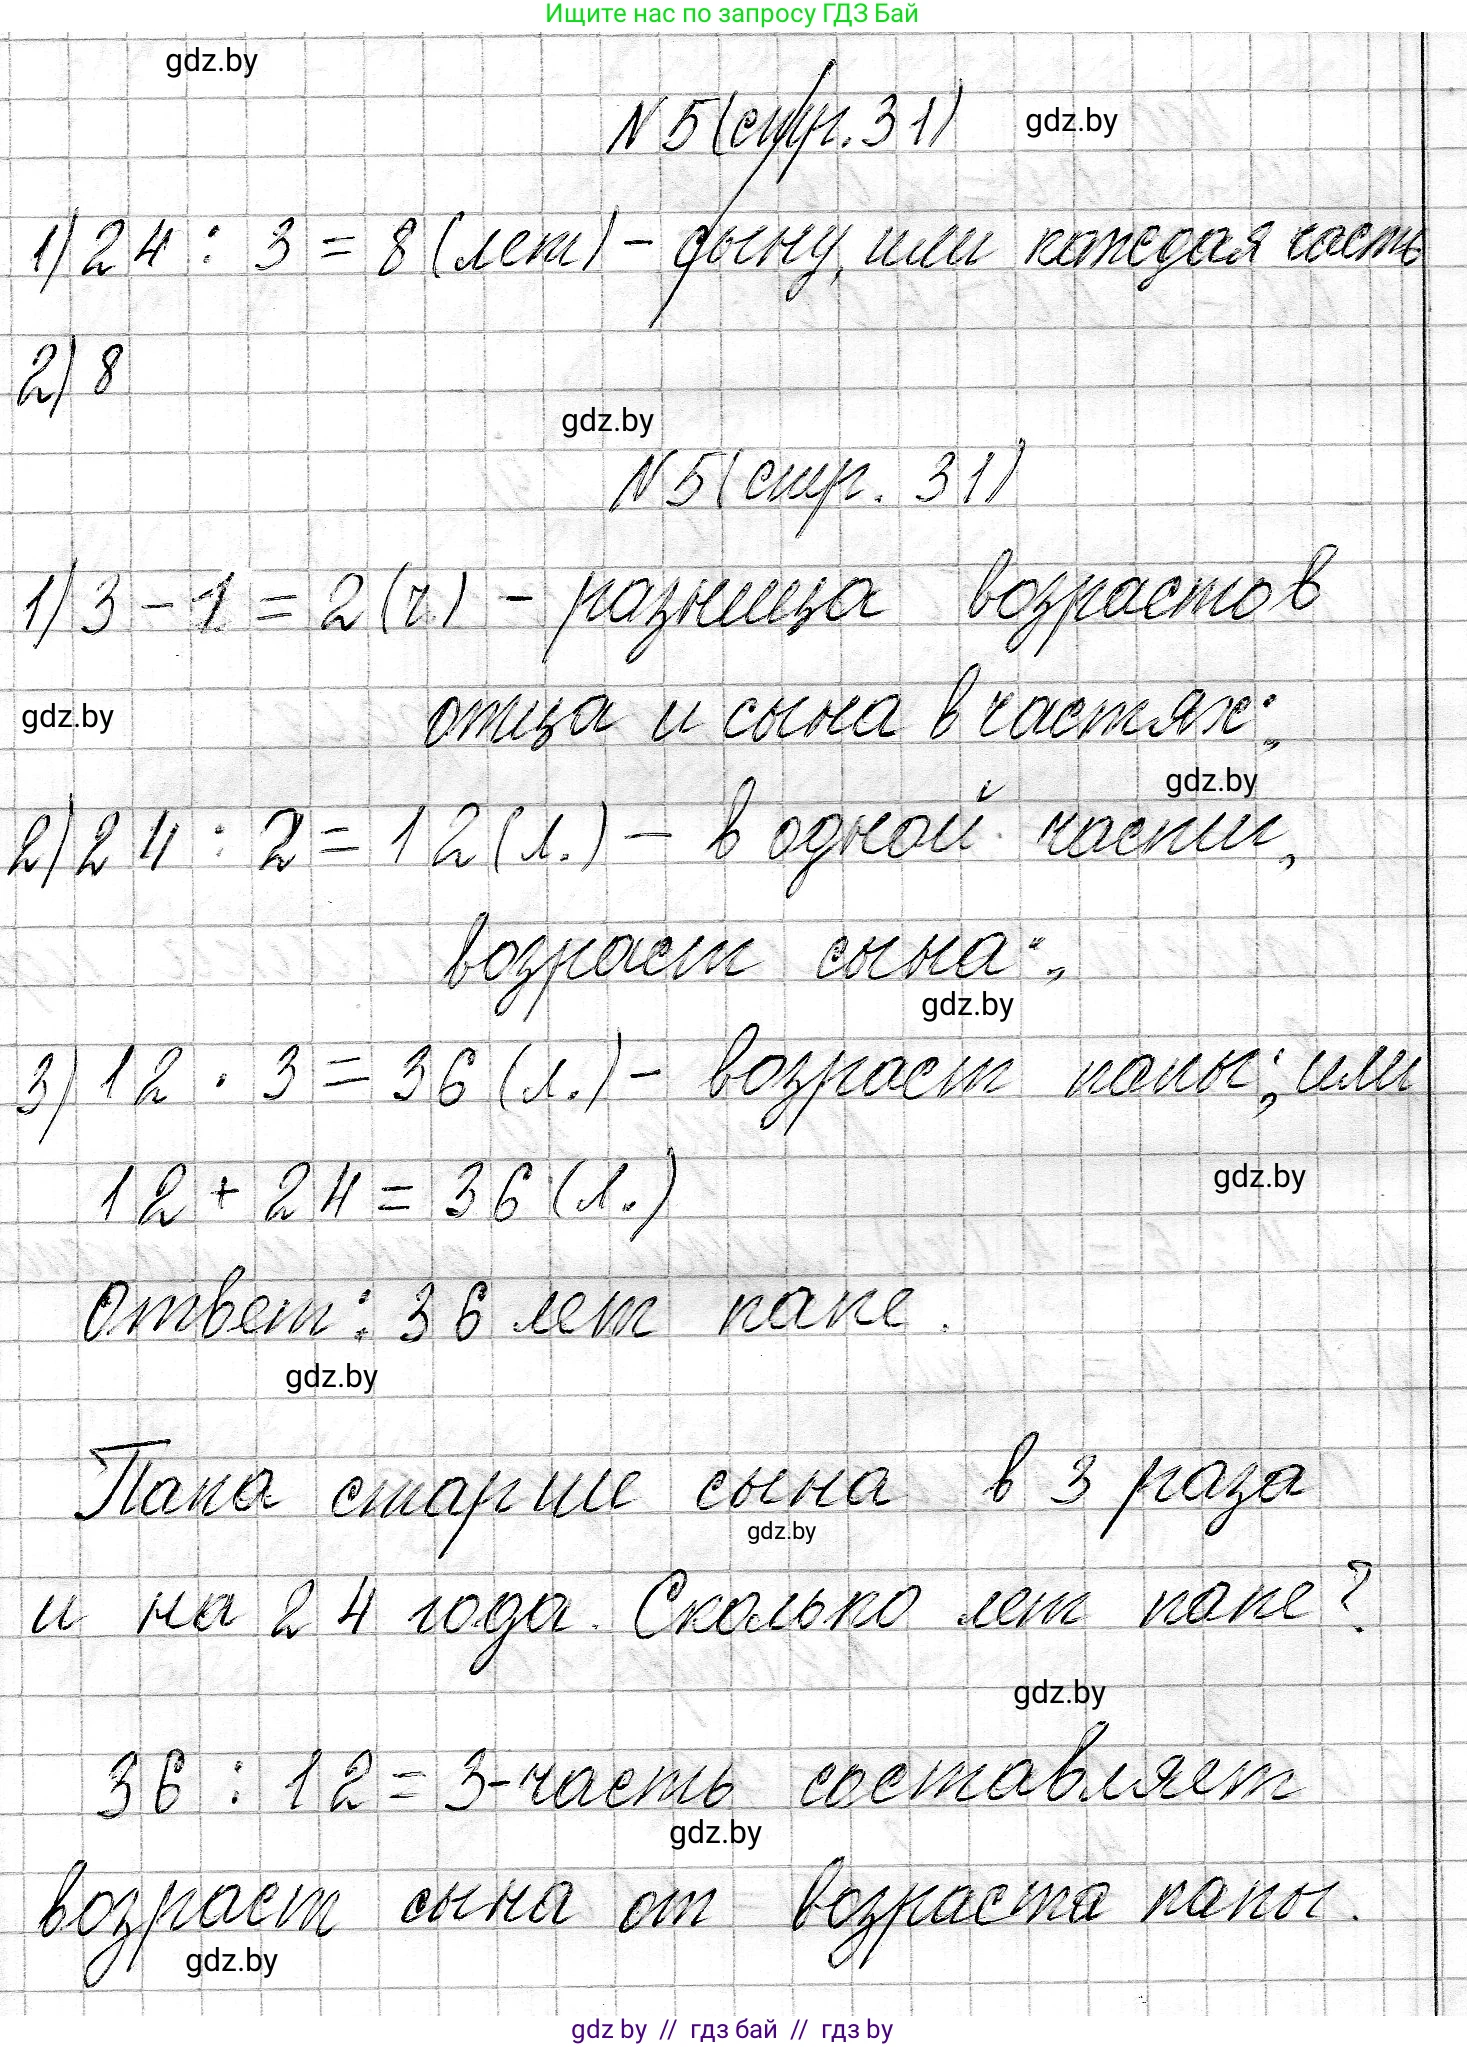 Ищите нас по запросу ГДЗ Бай
gdz.by
N 5 (стр. 31)
gdz.by
1) 24 : 3 = 8 (лет) - сыну, или каждая часть
2) 8
gdz.by
N 5 (стр. 31)
1) 3 - 1 = 2 (ч.) - разница возрастов
отца и сына в частях;
gdz.by
gdz.by
2) 24 : 2 = 12 (л.) - в одной части,
возраст сына;
gdz.by
3) 12 · 3 = 36 (л.) - возраст папы; или
12 + 24 = 36 (л.)
gdz.by
Ответ: 36 лет папе.
gdz.by
Папа старше сына в 3 раза
gdz.by
и на 24 года. Сколько лет папе?
gdz.by
36 : 12 = 3-часть составляет
gdz.by
возраст сына от возраста папы.
gdz.by
gdz by // гдз бай // гдз by